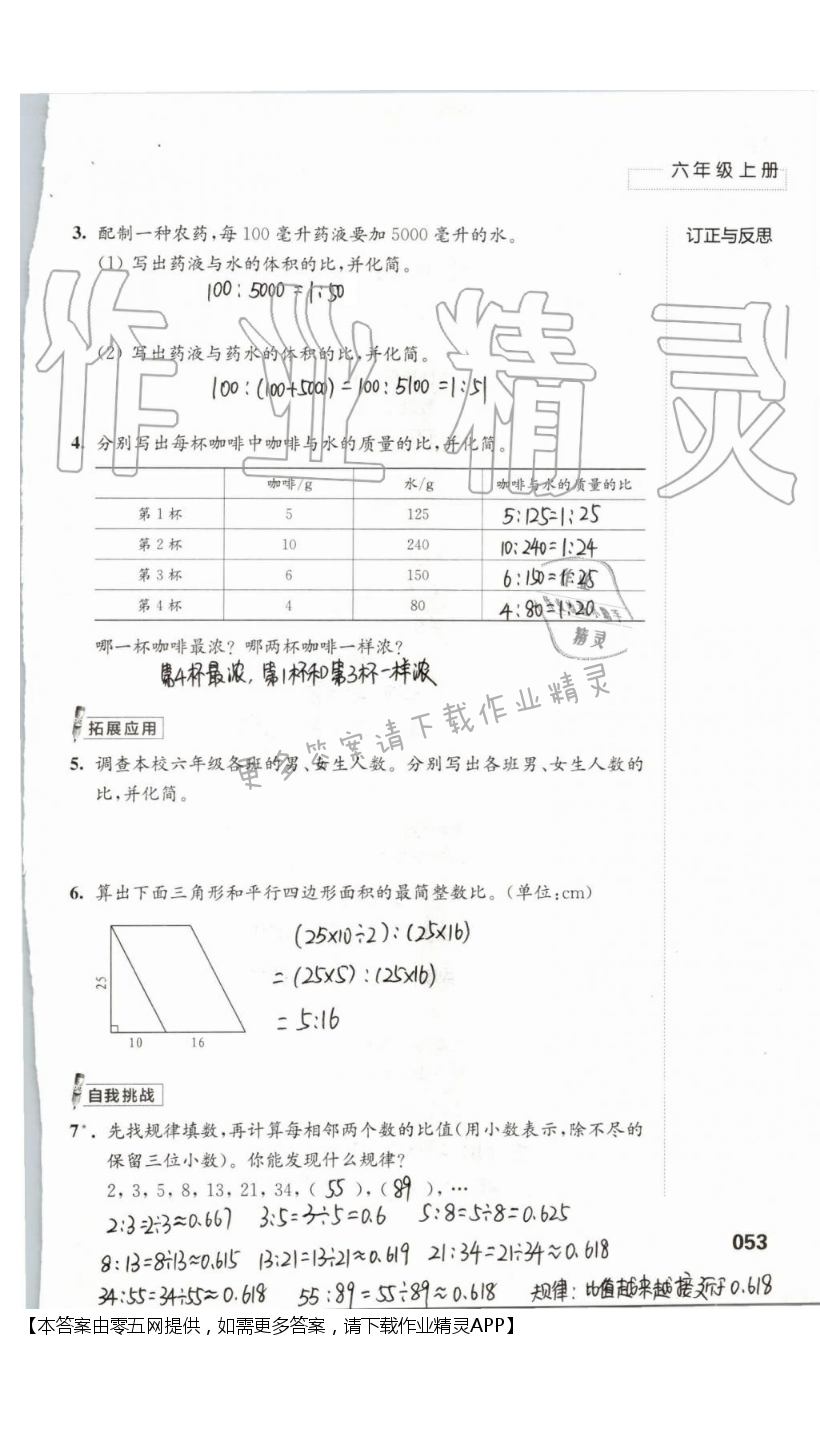 六年级上册
订正与反思
3. 配制一种农药,每 100 毫升药液要加 5000 毫升的水。
(1) 写出药液与水的体积的比,并化简。
100:5000=1:50
(2) 写出药液与药水的体积的比,并化简。
100:(100+5000)=100:5100=1:51
作业精灵
4. 分别写出每杯咖啡中咖啡与水的质量的比,并化简。
咖啡/g 水/g 咖啡与水的质量的比
第 1 杯 5 125 5:125=1:25
第 2 杯 10 240 10:240=1:24
第 3 杯 6 150 6:150=1:25
第 4 杯 4 80 4:80=1:20
精灵
哪一杯咖啡最浓? 哪两杯咖啡一样浓?
第4杯最浓,第1杯和第3杯一样浓
更多答案请下载作业精灵
拓展应用
5. 调查本校六年级各班的男、女生人数。分别写出各班男、女生人数的
比,并化简。
6. 算出下面三角形和平行四边形面积的最简整数比。(单位:cm)
(25×10÷2):(25×16)
=(25×5):(25×16)
=5:16
25
10 16
自我挑战
7*. 先找规律填数,再计算每相邻两个数的比值(用小数表示,除不尽的
保留三位小数)。你能发现什么规律?
2, 3, 5, 8, 13, 21, 34, ( 55 ), ( 89 ), …
2:3=2÷3≈0.667 3:5=3÷5=0.6 5:8=5÷8=0.625
8:13=8÷13≈0.615 13:21=13÷21≈0.619 21:34=21÷34≈0.618
34:55=34÷55≈0.618 55:89=55÷89≈0.618 规律:比值越来越接近于0.618
053
【本答案由零五网提供，如需更多答案，请下载作业精灵APP】